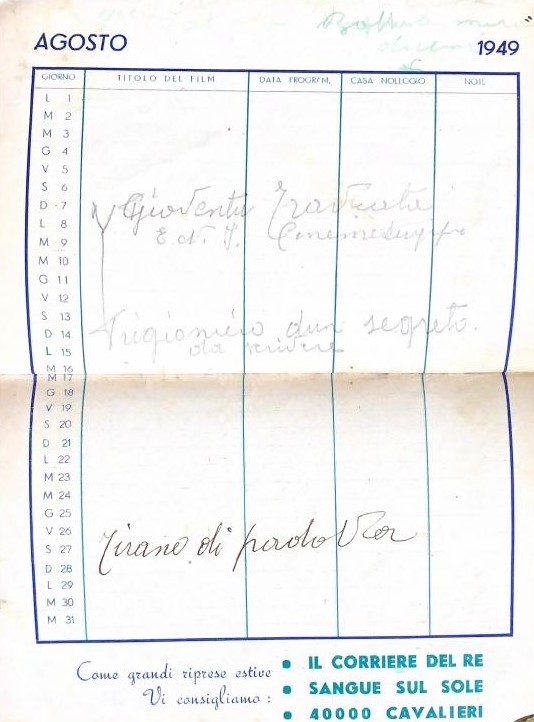 AGOSTO 1949
GIORNO TITOLO DEL FILM DATA PROGR/M. CASA NOLLOGIO NOTE
L 1
M 2
M 3
G 4
V 5
S 6
D 7 Gioventu Traviata
L 8
M 9
M 10
G 11
V 12
S 13
D 14 Prigioniero dun segreto.
L 15 da scrivere
M 16
M 17
G 18
V 19
S 20
D 21
L 22
M 23
M 24
G 25
V 26
S 27 Tirano di
D 28
L 29
M 30
M 31
Come grandi riprese estive
Vi consigliamo :
• IL CORRIERE DEL RE
• SANGUE SUL SOLE
• 40000 CAVALIERI